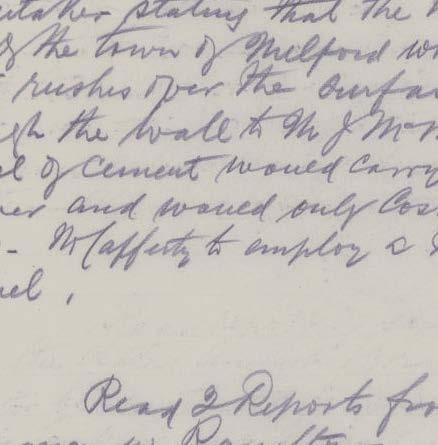 stating that the
of the town of Milford
rushes over the surfa
the wall to Mr J McN
of cement would carry
and would only cos
McCafferty to employ a

Read 2 Reports fro